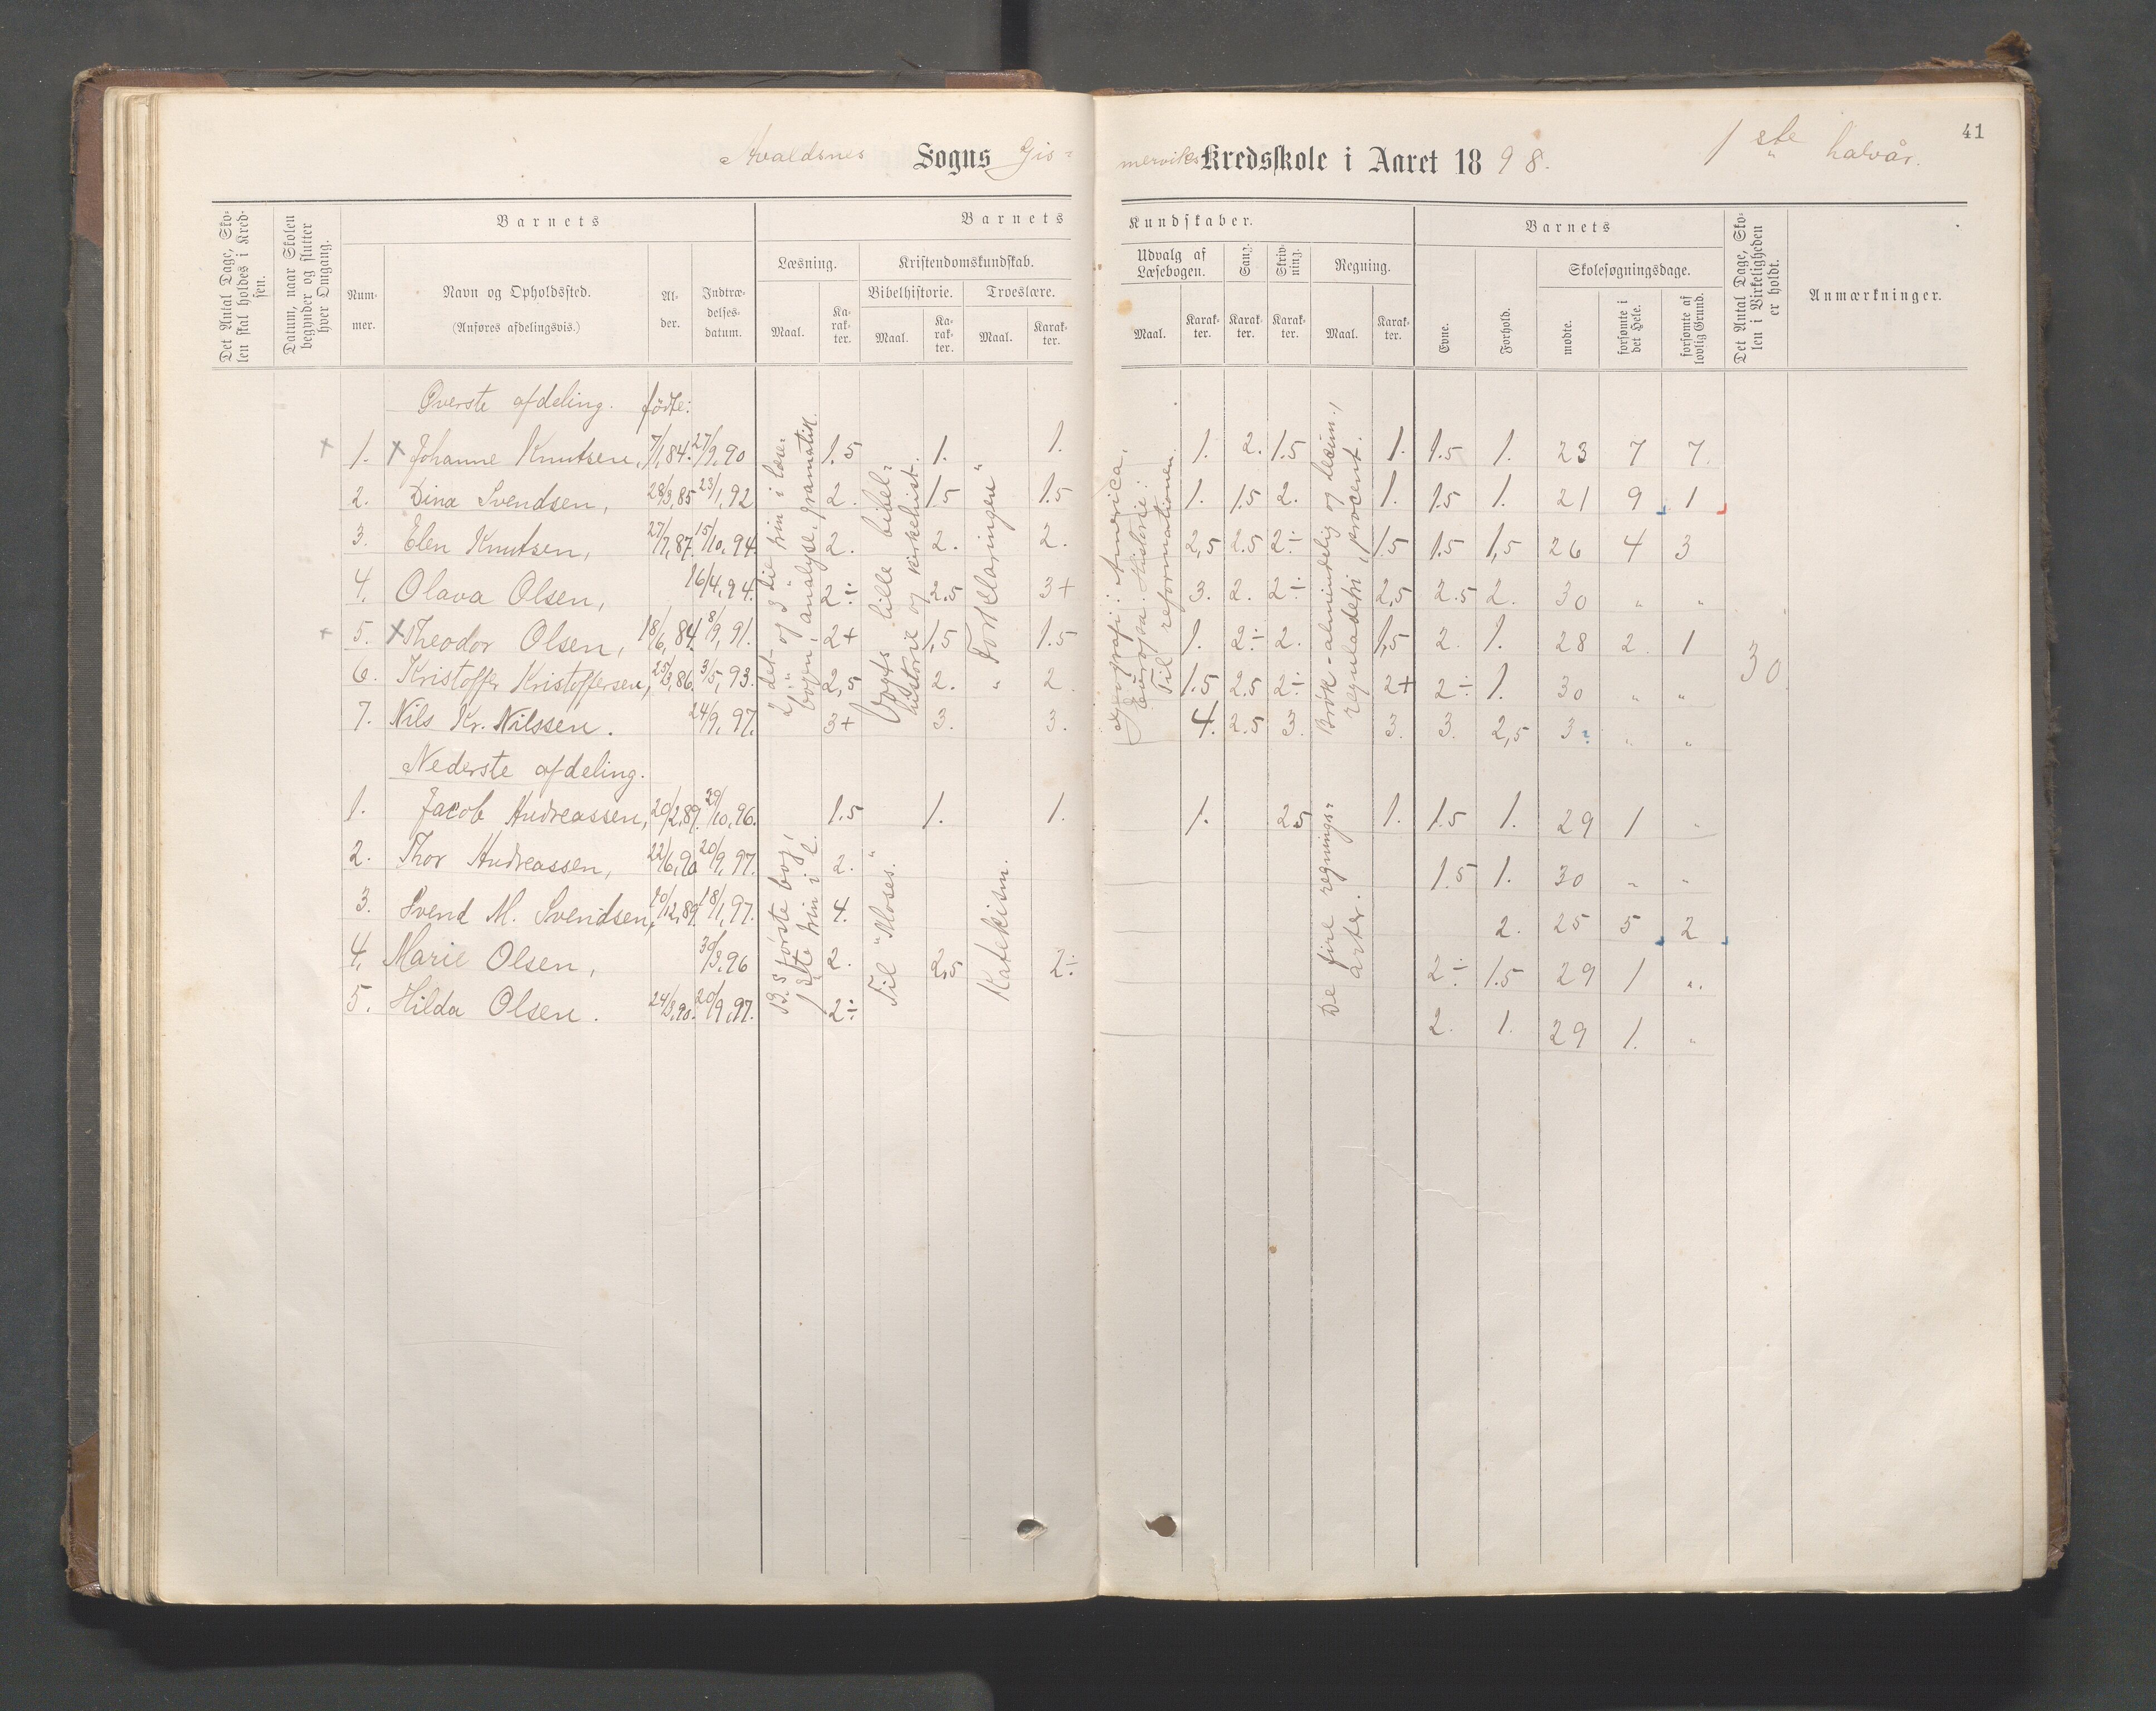 41
Avaldsnes Sogns Gis=
merviks Kredsskole i Aaret 1898. 1 ste halvår.
Det Antal Dage, Sko-
len skal holdes i Kred-
sen.
Datum, naar Skolen
begynder og slutter
hver Omgang.
Barnets
Num-
mer.
Navn og Opholdssted.
(Anføres afdelingsvis.)
Al-
der.
Indtræ-
delses-
datum.
Barnets
Læsning.
Maal.
Ka-
rak-
ter.
Kristendomskundskab.
Bibelhistorie.
Maal.
Ka-
rak-
ter.
Troeslære.
Maal.
Karak-
ter.
Kundskaber.
Udvalg af
Læsebogen.
Maal.
Karak-
ter.
Sang.
Karak-
ter.
Skriv-
ning.
Karak-
ter.
Regning.
Maal.
Karak-
ter.
Barnets
Evne.
Forhold.
Skolesøgningsdage.
mødte.
forsømte i
det Hele.
forsømte af
lovlig Grund.
Det Antal Dage, Sko-
len i Virkeligheden
er holdt.
Anmærkninger.
Øverste afdeling. fødte:
+ 1. + Johanne Knutsen, 7/1, 84. 27/9, 90 1.5 1. 1. 1. 2. 1.5 1. 1.5 1. 23 7 7.
2. Dina Svendsen, 28/3, 85 23/1, 92 2. 1.5 1.5 1. 1.5 2. 1. 1.5 1. 21 9 1
3. Elen Knutsen, 27/7, 87. 15/10, 94. 2. 2. 2. 2.5 2.5 2÷ 1.5 1.5 1,5 26 4 3
4. Olava Olsen, 16/4, 94. 2÷ 2.5 3+ 3. 2. 2÷ 2,5 2.5 2. 30 " "
+ 5. + Theodor Olsen, 18/6, 84. 8/9, 91. 2+ 1.5 1.5 1. 2÷ 2. 1,5 2. 1. 28 2. 1
6. Kristoffer Kristoffersen, 25/3, 86. 3/5, 93. 2,5 2. 2. 1.5 2.5 2÷ 2+ 2÷ 1. 30 " "
7. Nils Kr. Nilssen. 24/9, 97. 3+ 3. 3. 4. 2.5 3. 3. 3. 2,5 3? " "
30
2det og 3die trin i læse=
bogen, analyse, gramatik.
Vogts lille bibel=
historie og kirkehist.
Forklaringen
Geografi: Amerika,
Europa. Historie:
Til reformationen.
Brøk-almindelig og decim.,
reguladetri, procent.
Nederste afdeling.
1. Jacob Andreassen, 20/2, 89. 29/10, 96. 1.5 1. 1. 1. 2.5 1. 1.5 1. 29 1 "
2. Thor Andreassen, 22/6, 90 20/9, 97. 2. 1.5 1. 30 " "
3. Svend M. Svendsen, 10/12, 89. 18/1, 97. 4. 2. 25 5 2
4. Marie Olsen, 30/3, 96 2. 2,5 2÷ 2÷ 1.5 29 1 "
5. Hilda Olsen. 24/3, 90. 20/9, 97. 2÷ 2. 1. 29 1. "
Til "Moses."
Katekism.
De fire regnings=
arter.